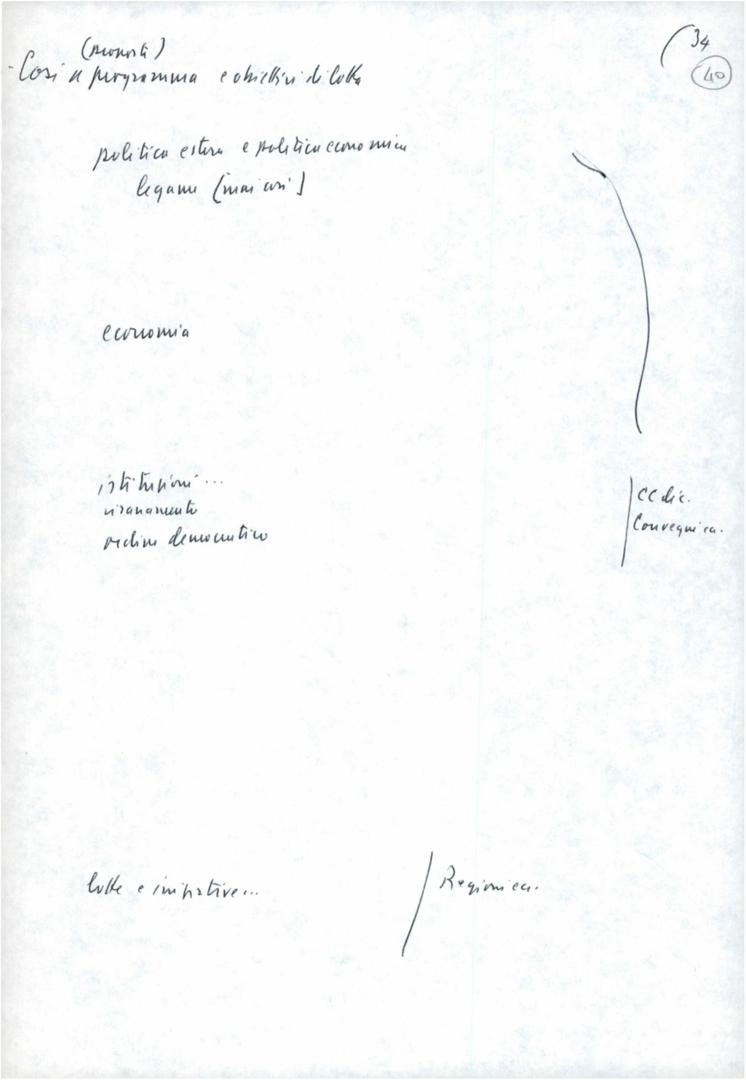 34
40
(proposti)
- Così il programma e obiettivi di lotta
politica estera e politica economica
legame [mai così]
economia
istituzioni...
risanamento
ordine democratico
CC dic.
Convegni ec.
lotte e iniziative...
Regioni ec.